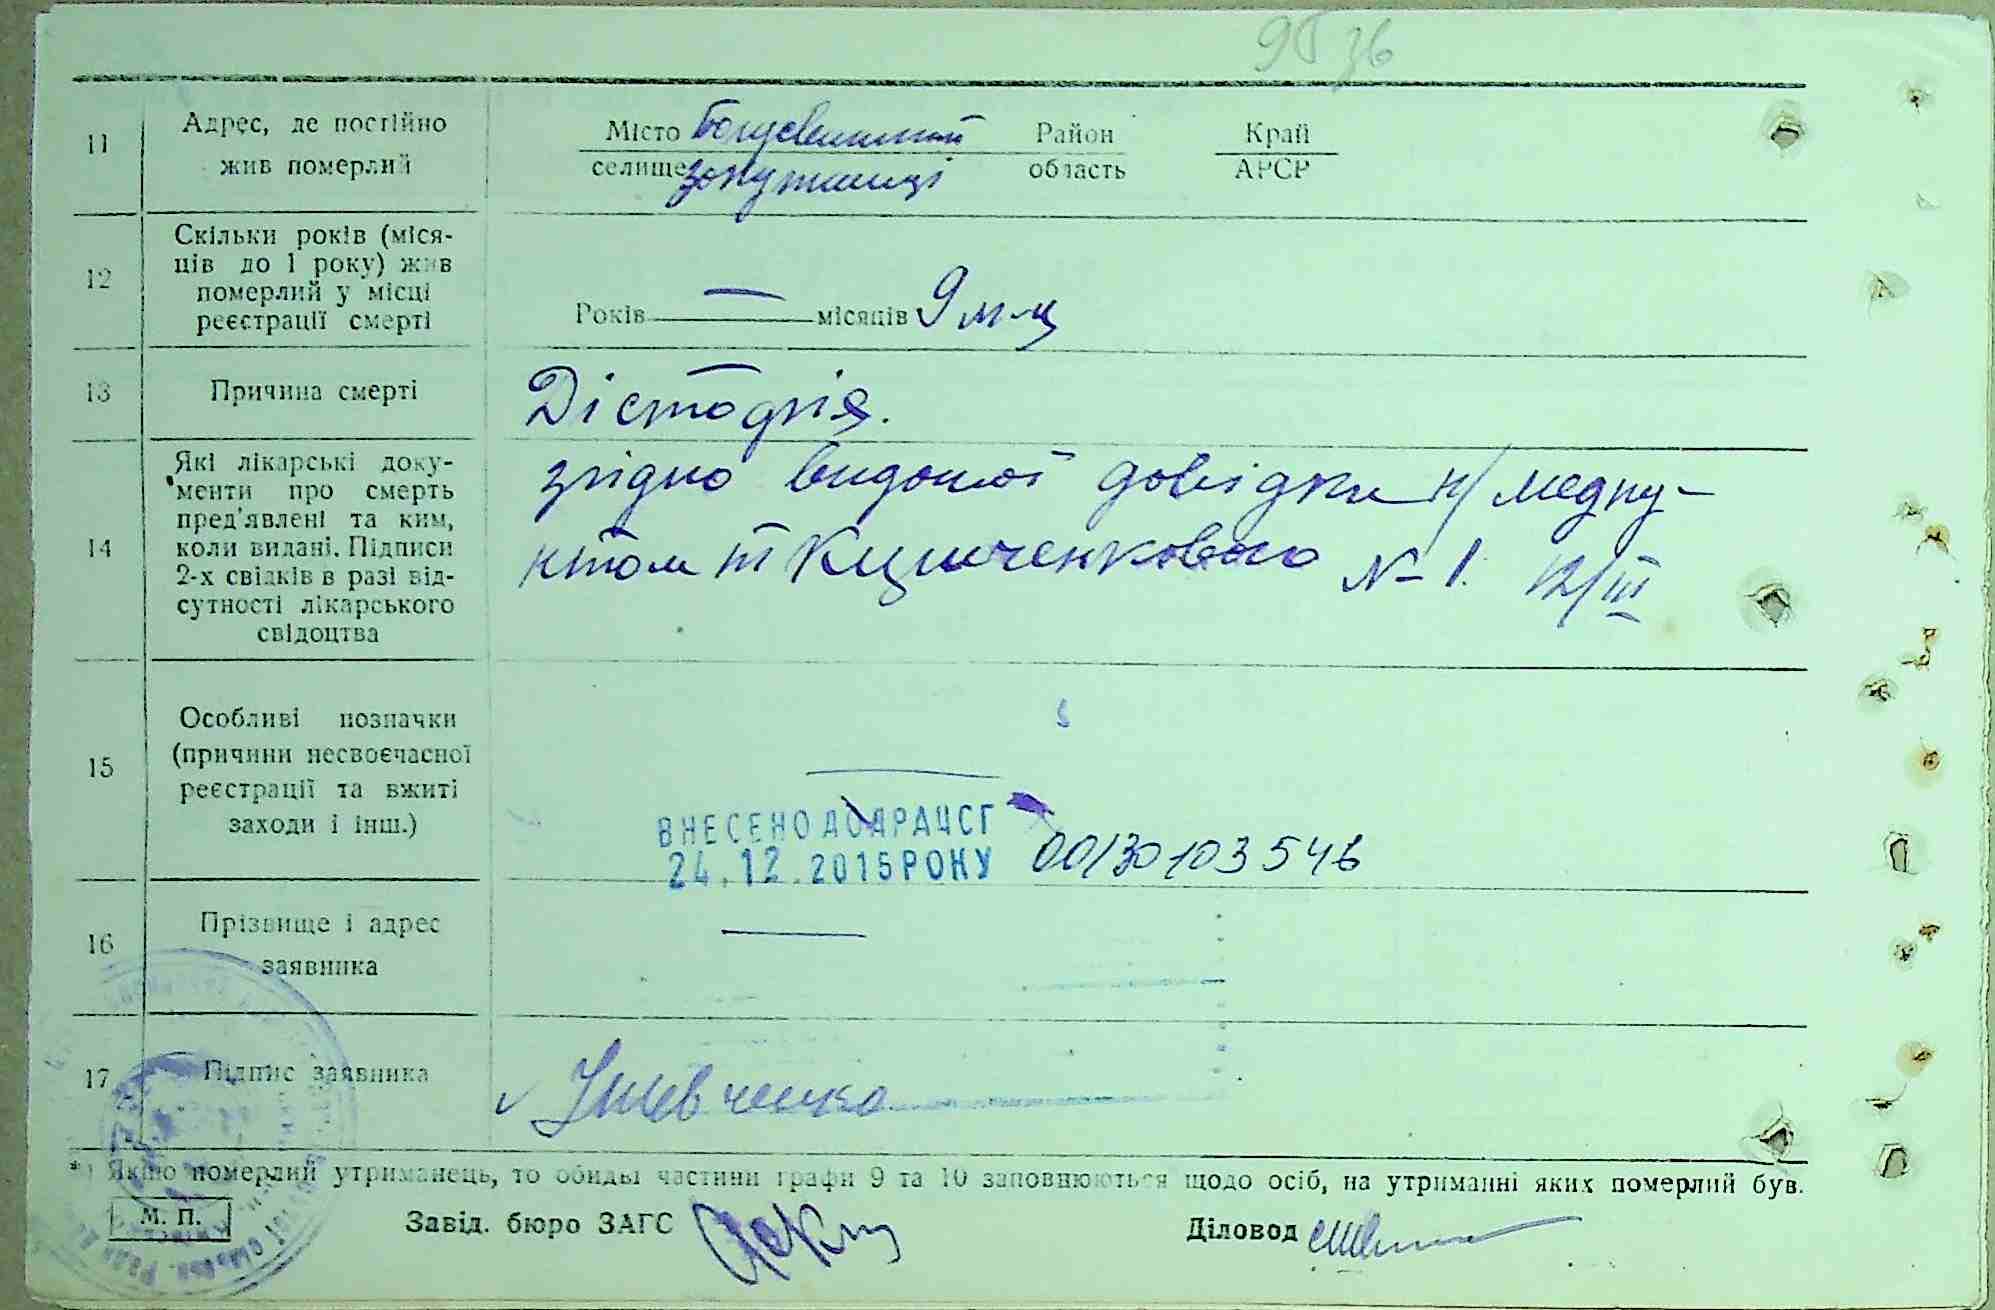 11
Адрес, де постійно
жив померлий
Місто
Район
Край
селище
область
АРСР
12
Скільки років (міся-
ців до 1 року) жив
померлий у місці
реєстрації смерті
Років — місяців 9 м-ц
13
Причина смерті
Дістофія.
14
Які лікарські доку-
менти про смерть
пред'явлені та ким,
коли видані. Підписи
2-х свідків в разі від-
сутності лікарського
свідоцтва
згідно видоної довідки н/медпу-
нктом т № 1. 12/III
15
Особливі позначки
(причини несвоєчасної
реєстрації та вжиті
заходи і інш.)
ВНЕСЕНО ДО ДРАЦСГ
24.12.2015 РОКУ 00130103546
16
Прізвище і адрес
заявника
—
17
Підпис заявника
Шевченко
*) Якщо померлий утриманець, то обидві частини графи 9 та 10 заповнюються щодо осіб, на утриманні яких померлий був.
М. П.
Завід. бюро ЗАГС
Діловод